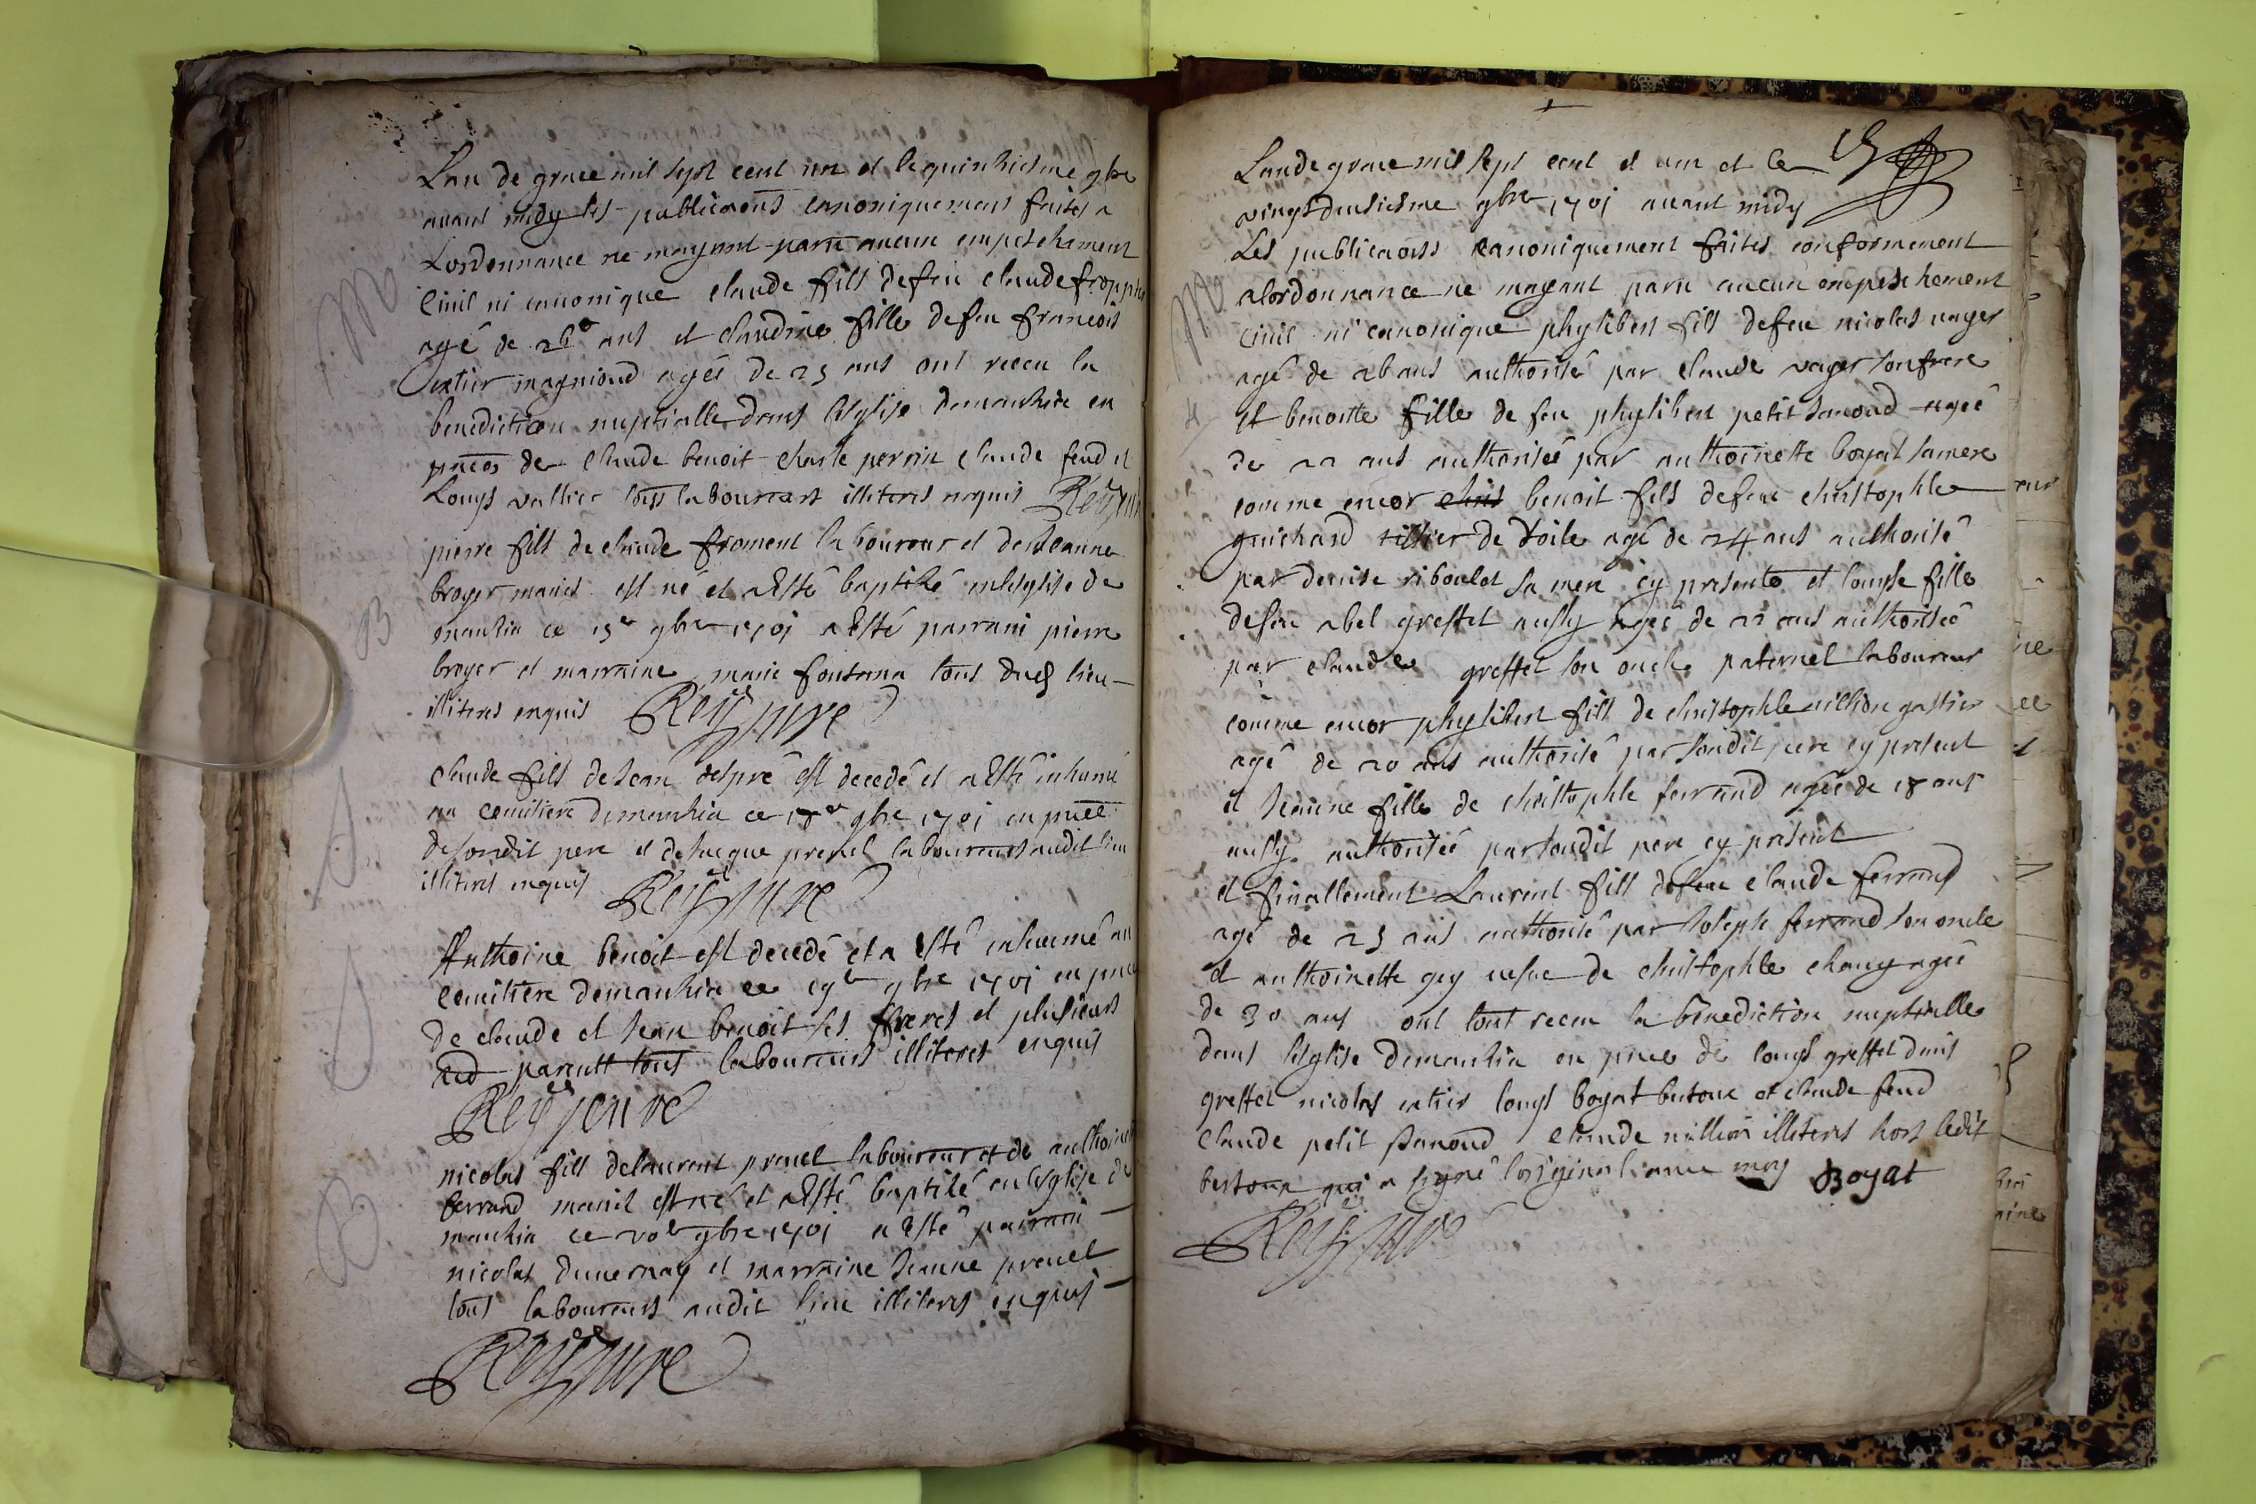 M
Lan de grace mil sept cent un et le quinziesme 9bre
avant midy les publicaons canoniquement faites a
Lordonnance ne mayant paru aucun empeschement
Civil ni canonique claude fils defeu claude froppier
agé de 26 ans et claudine fille defeu francois
agée de 23 ans ont receu la
benediction nuptialle dans lesglise demanzia en
pnces de Claude benoit charle perrin claude fend et
Louys vallier tous laboureurs illiteres enquis Rey
B
pierre fils de claude froment laboureur et de Jeanne
broyer mariés est né et a Esté baptizé en lesglise de
manzia ce 15e 9bre 1701 a Esté parrain pierre
broyer et marraine marie fontana tous dud lieu
illiteres enquis Rey curé
S
claude fils de Jean despré est decedé et a Esté inhumé
au cemitiere demanzia ce 17e 9bre 1701 en pnce
desondit pere et de Jacque prevel laboureurs audit lieu
illiteres enquis Rey curé
S
Anthoine benoit est decedé et a Esté inhumé au
cemitiere demanzia ce 19e 9bre 1701 en pnce
de claude et Jean benoit ses freres et plusieurs
parentt tous laboureurs illiteres enquis
Rey curé
B
nicolas fils delaurent prevel laboureur et de anthoinette
ferrand mariés est né et a Esté baptizé en lesglise de
manzia ce 20e 9bre 1701 a Esté parrain
nicolas duvernay et marraine Jeanne prevel
tous laboureurs audit lieu illiteres enquis
Rey curé
Lan de grace mil sept cent et un et le
vingt deusiesme 9bre 1701 avant midy
M
Les publicaons canoniquement faites conformement
a lordonnance ne mayant paru aucun empeschement
Civil ni canonique phylibert fils defeu nicolas vayer
agé de 26 ans authorisé par claude vayer son frere
4
Et benoite fille de feu phylibert petit Janoud agée
de 22 ans authorisée par anthoinette boyat sa mere
comme encor chris benoit fils defeu christophle
guichard tissier de toile agé de 24 ans authorisé
par denise riboulet sa mere cy presente et louyse fille
defeu abel greffet aussy agée de 22 ans authorisée
par claude greffet son oncle paternel laboureur
comme encor phylibert fils de christophle million
agé de 20 ans authorisé par sondit pere cy present
et Jeanne fille de christophle ferrand agée de 18 ans
aussy authorisée par sondit pere cy present
et finallement Laurent fils defeu claude ferrand
agé de 23 ans authorisé par Joseph ferrand son oncle
et anthoinette gey vefve de christophle chanay agée
de 30 ans ont tous receu la benediction nuptialle
dans lesglise demanzia en pnce de louys greffet denis
greffet nicolas louys boyat butoux et claude fend
Claude petit Janoud claude million illiteres hors ledit
butoux qui a signé loriginal avec moy Boyat
Rey curé